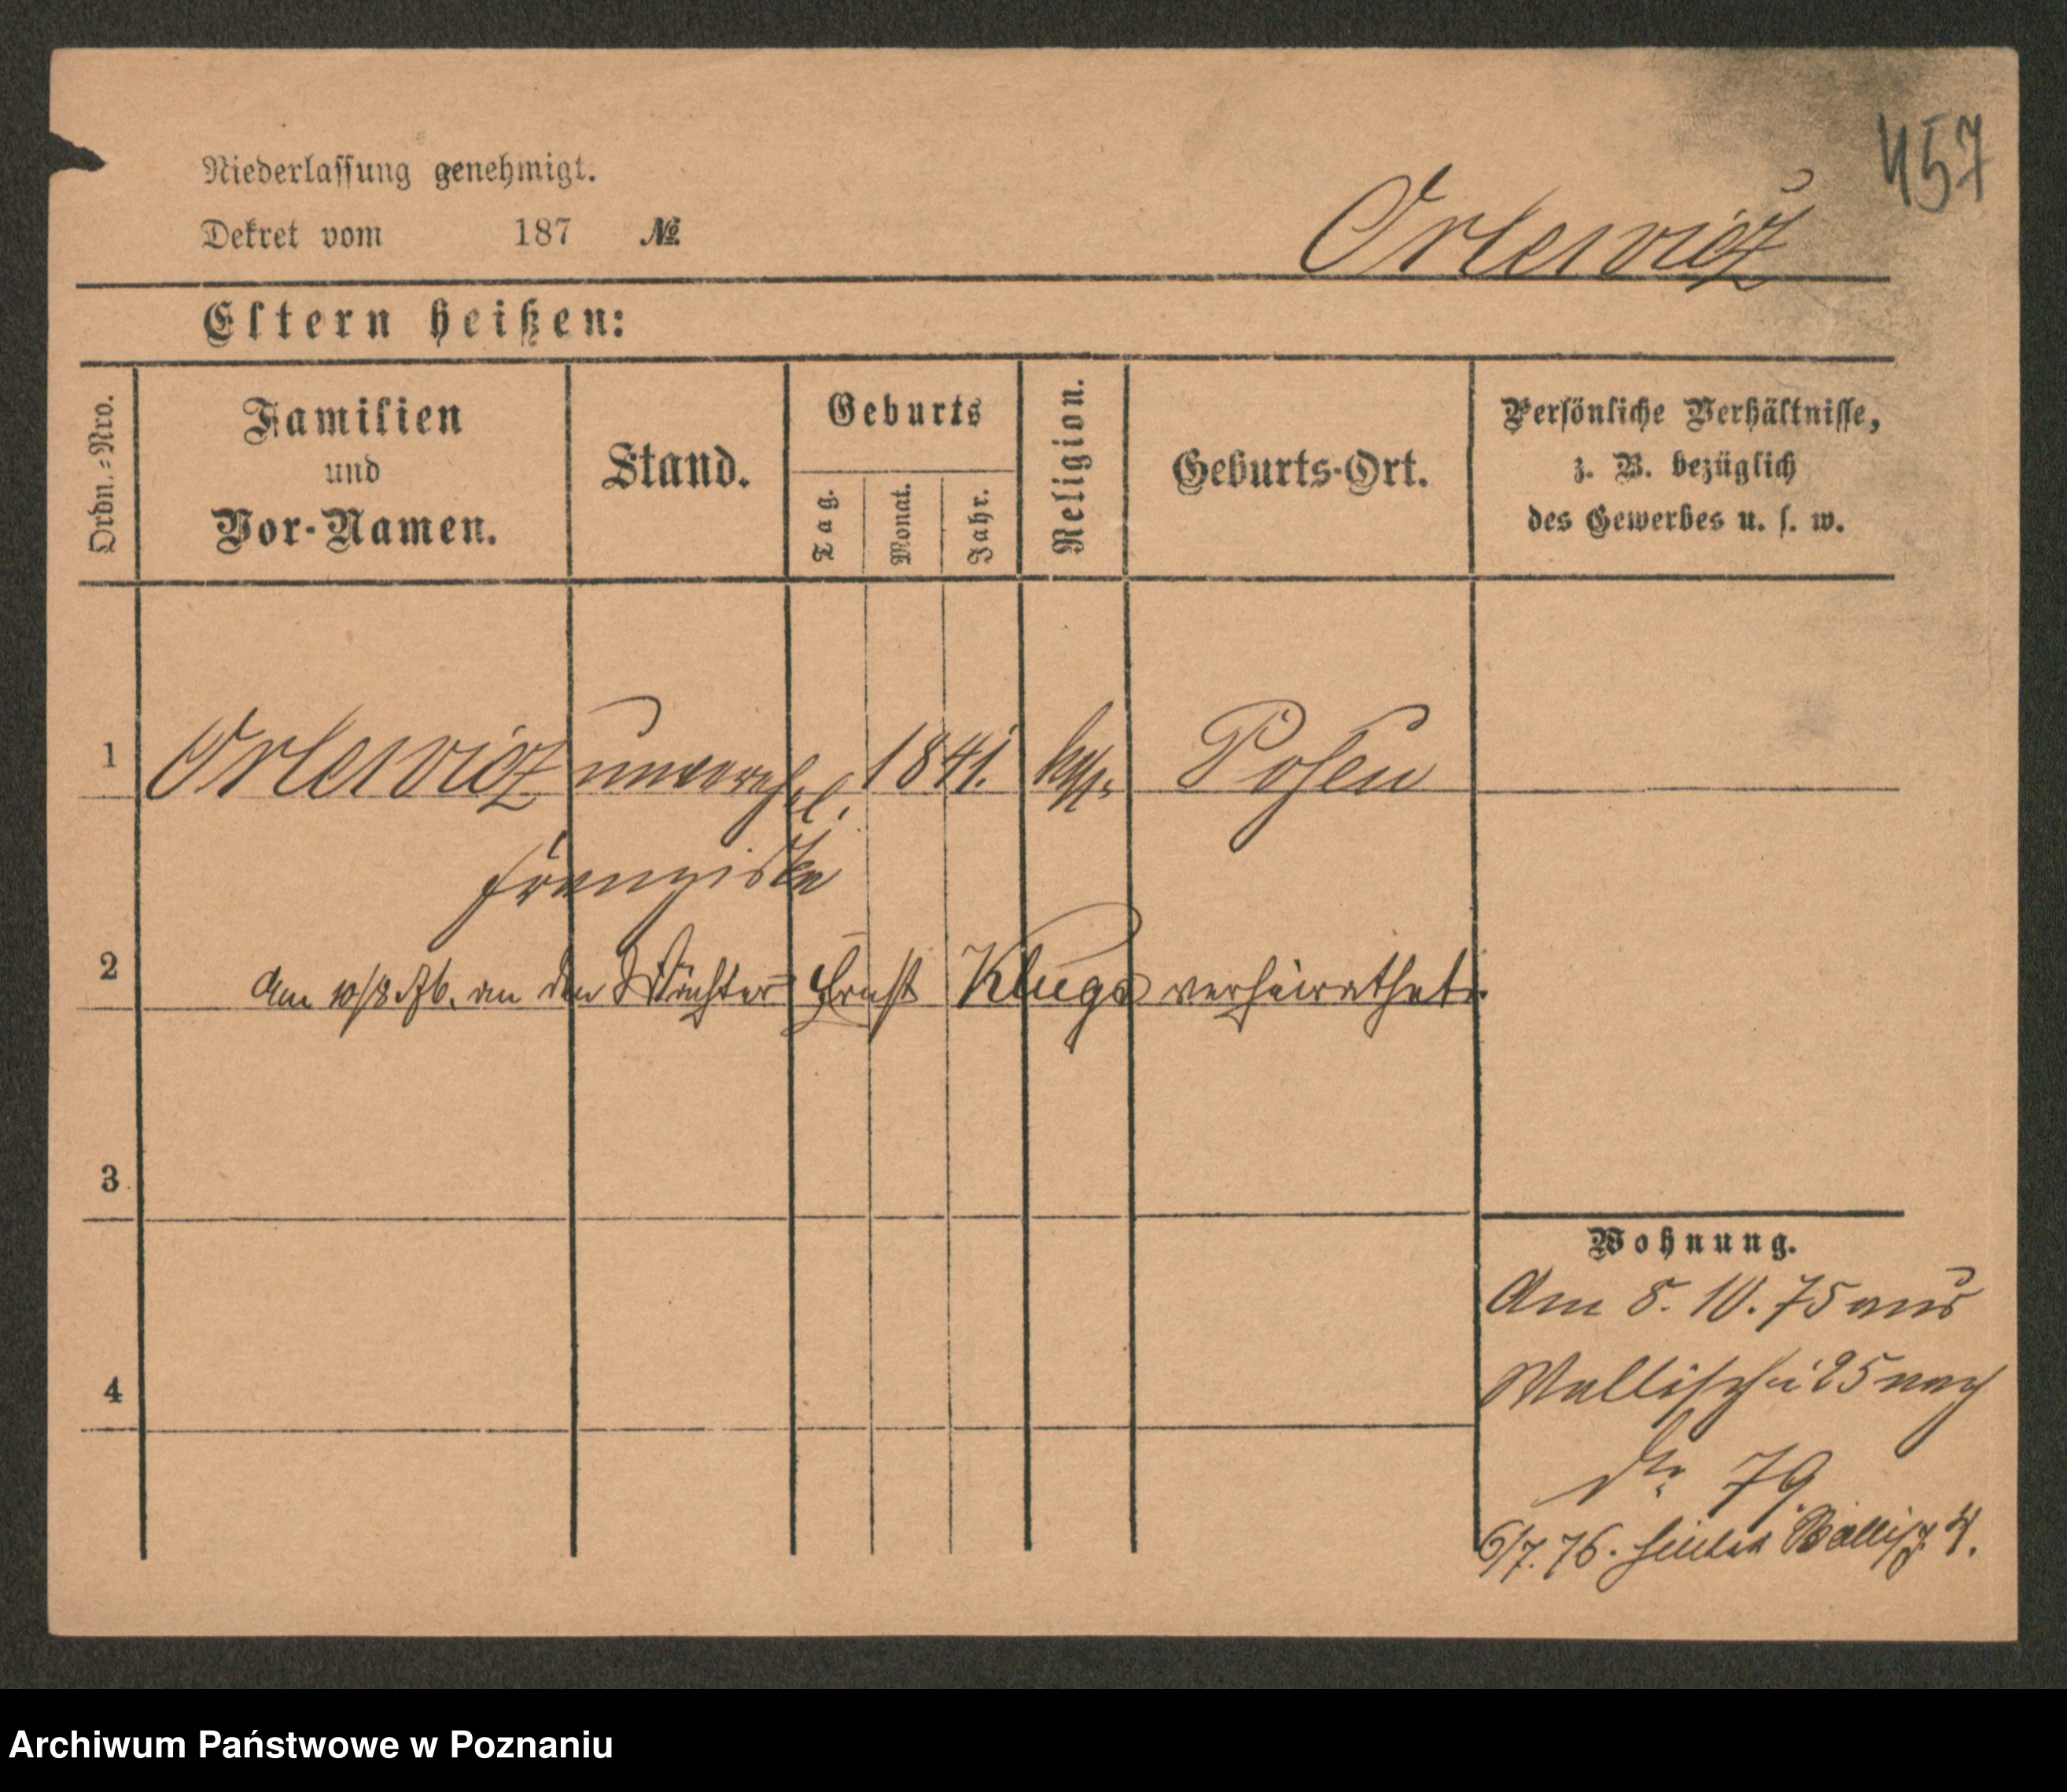 457
Niederlassung genehmigt.
Dekret vom 187 №
Orlewicz
Eltern heißen:
Ordn.=Nro.
Familien
und
Vor-Namen.
Stand.
Geburts
Tag.
Monat.
Jahr.
Religion.
Geburts-Ort.
Persönliche Verhältnisse,
z. B. bezüglich
des Gewerbes u. s. w.
1 Orlewicz unverehel. 1841. kath. Posen
Franziska
2 Am 10/8 76. an den Wächter Ernst Kluge verheirathet.
3
4
Wohnung.
Am 5. 10. 75 aus
Wallischei 25 nach
79
6/7. 76. Wallisch. 4.
Archiwum Państwowe w Poznaniu